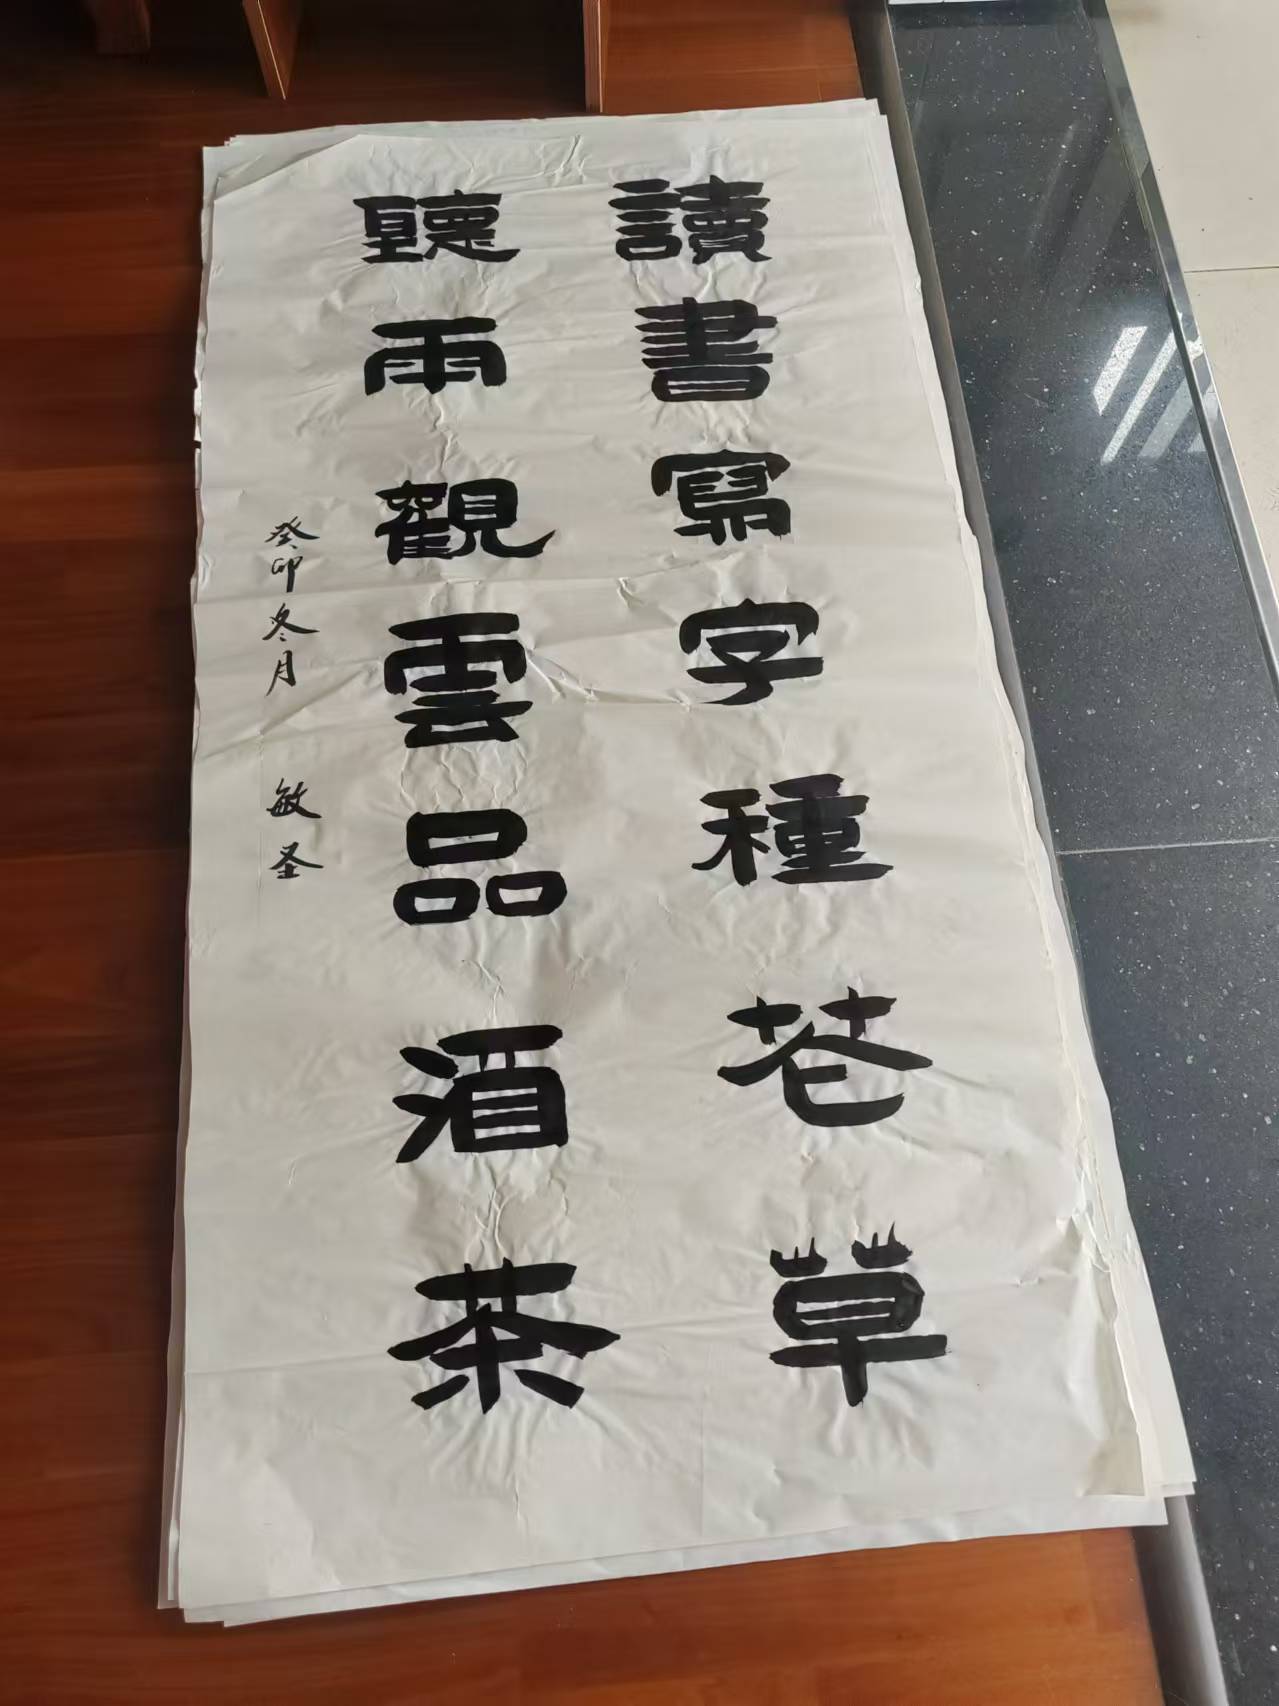 讀書寫字種花草
聽雨觀雲品酒茶
癸卯冬月 敏圣